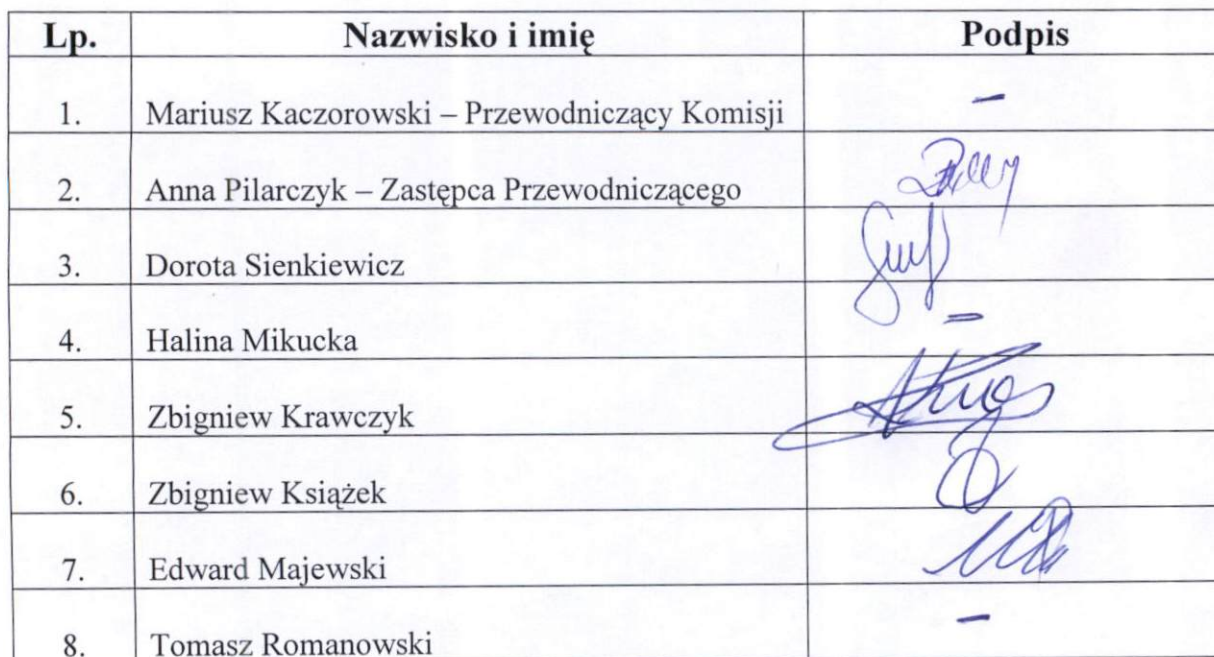 Lp. Nazwisko i imię Podpis
1. Mariusz Kaczorowski – Przewodniczący Komisji –
2. Anna Pilarczyk – Zastępca Przewodniczącego
3. Dorota Sienkiewicz
4. Halina Mikucka –
5. Zbigniew Krawczyk
6. Zbigniew Książek
7. Edward Majewski
8. Tomasz Romanowski –